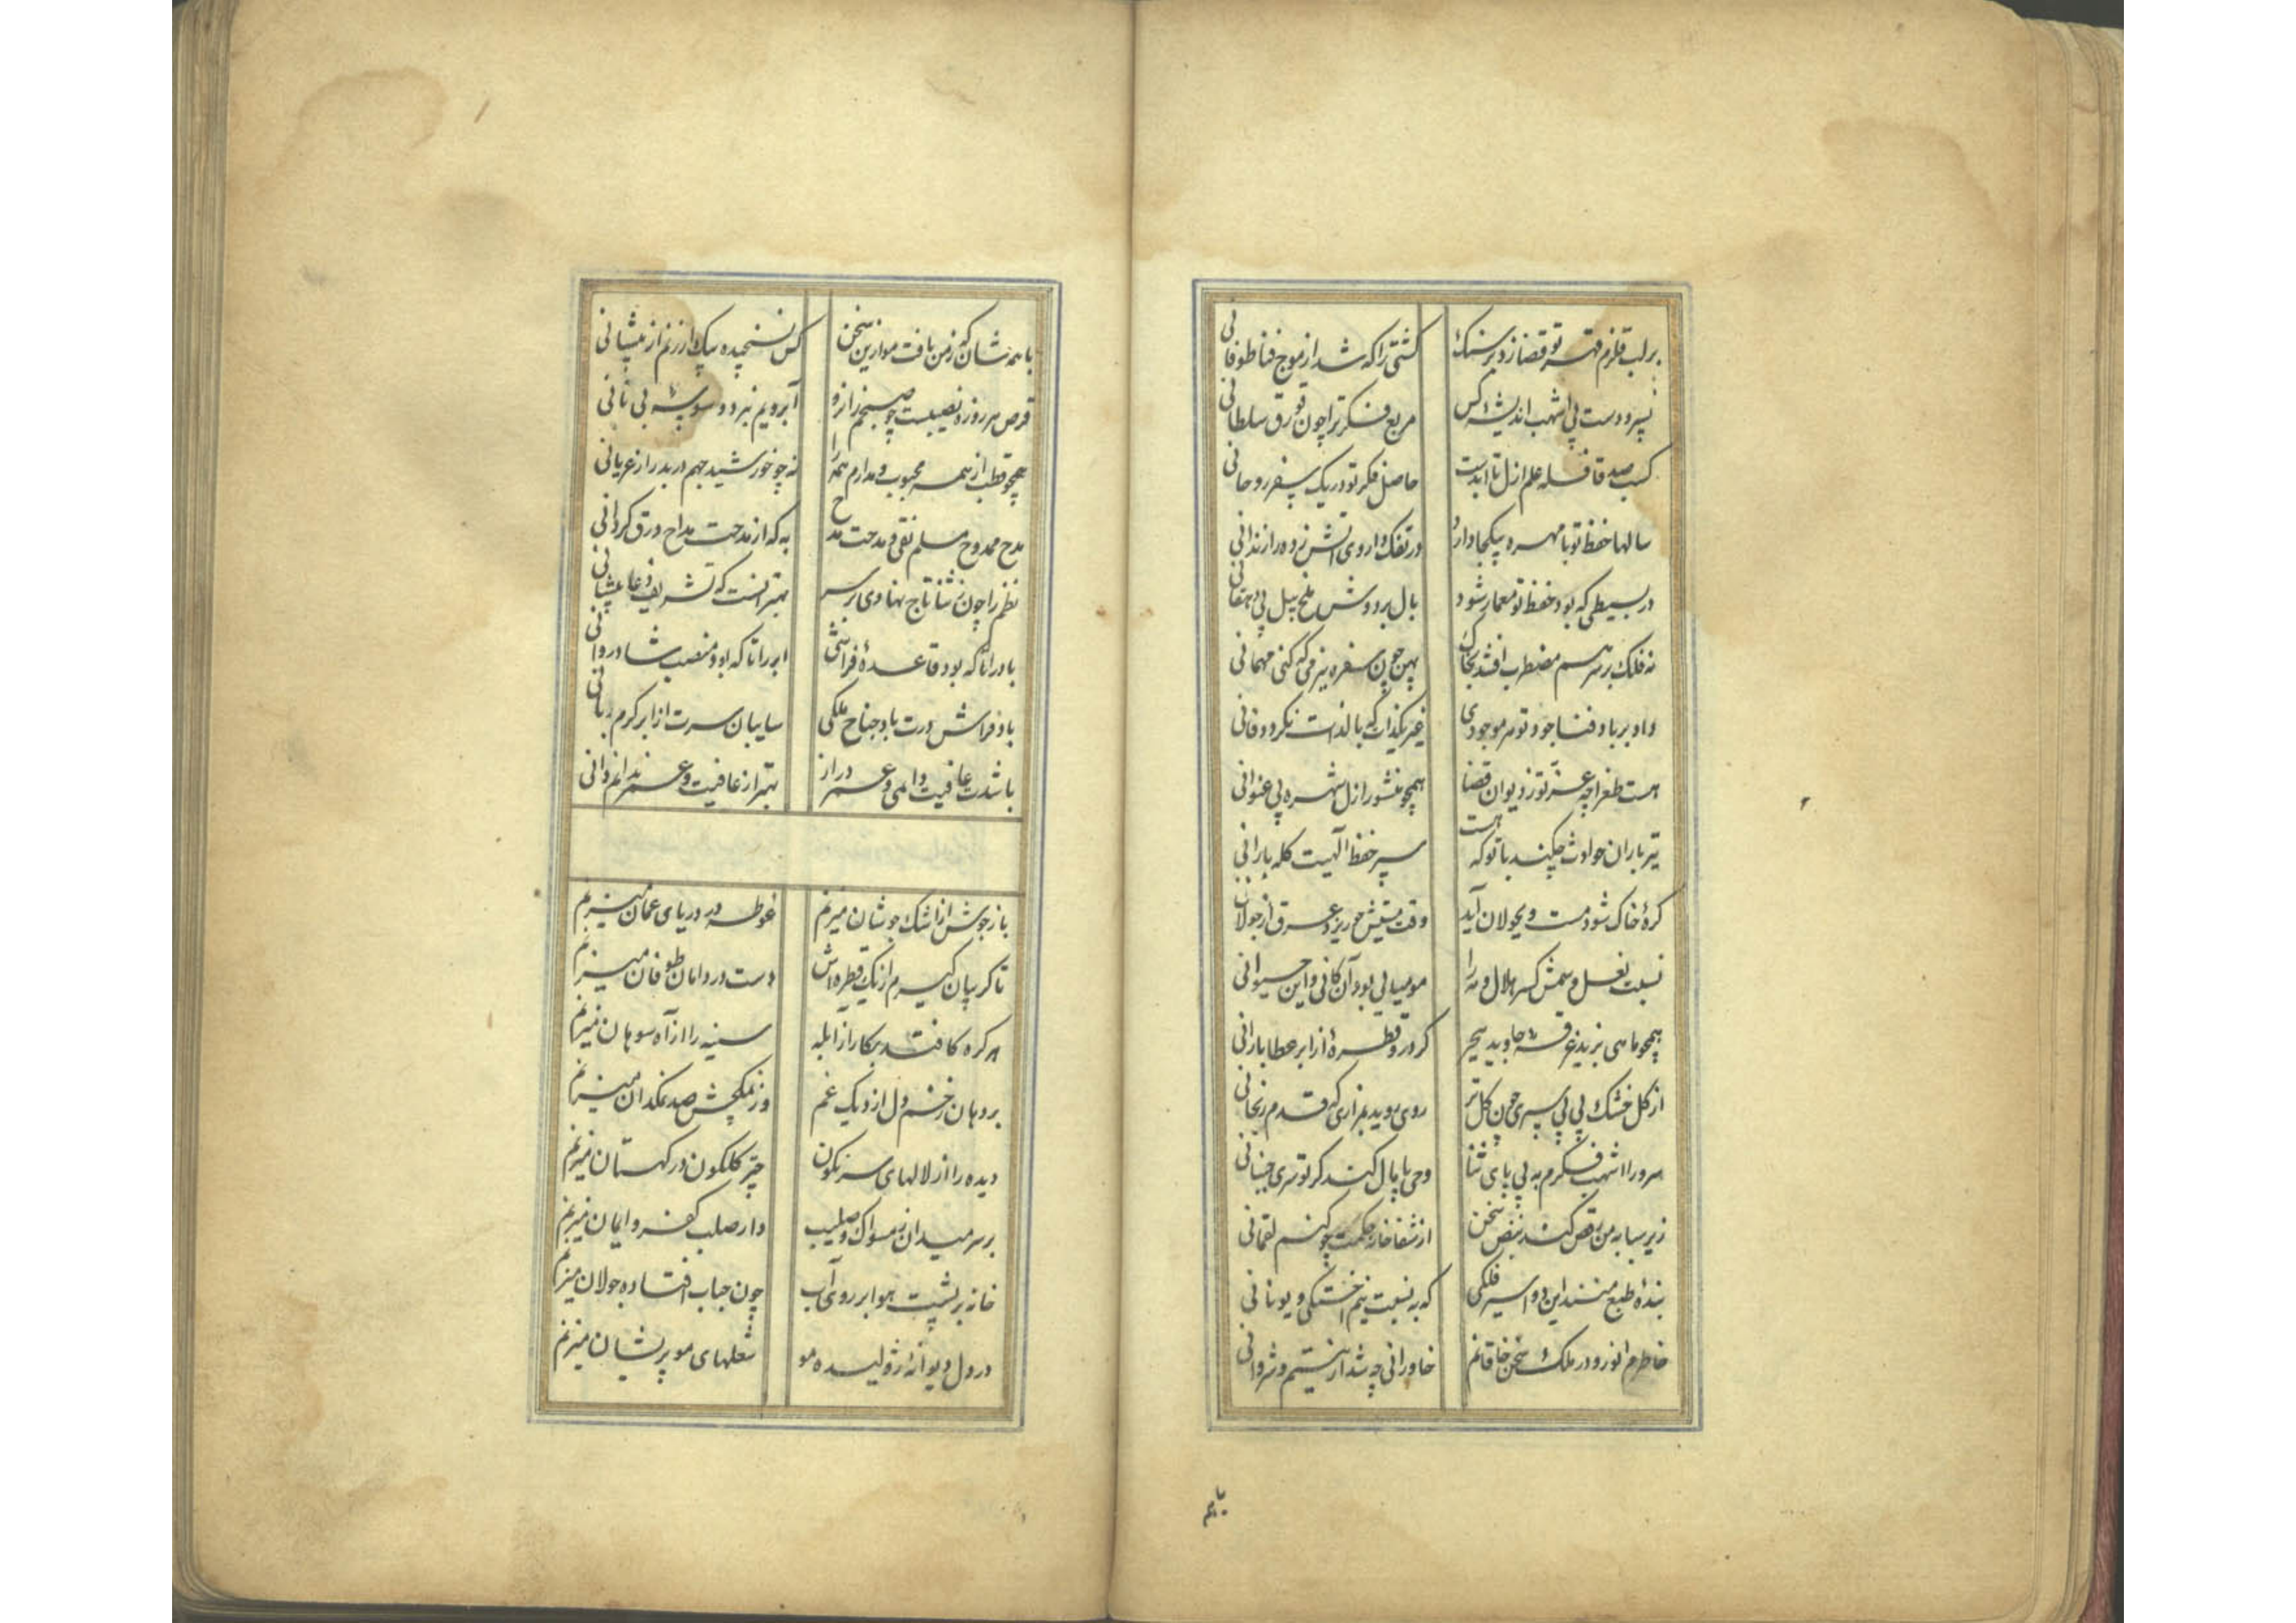 بر لب قلزم قهر تو قضا زد بر سنگ کشتی را که شد از موج فنا طوفانی
نسپرد دست پی اشهب اندیشه کس مربع فکر ترا چون قورق سلطانی
کسب صد قافله علم ازل تا ابدست حاصل فکر تو در یک سفر روحانی
سالها حفظ تو با مهره یکجا دارد در تفک داروی آتش زده را زندانی
در بسیطی که بود حفظ تو معمار شود بال بر دوش ملخ بیل پی دهقانی
نه فلک بر سر هم مضطرب افتد بخاک پهن چون سفره بزمی که کنی مهمانی
داد بر باد فنا جود تو هر موجودی غیر یکذات که بالذات نگردد فانی
هست طغراچه عز تو ز دیوان قضا همچو منشور ازل شهره بی عنوانی
تیر باران حوادث چکند با تو که هست سپر حفظ الهیت کله بارانی
کرهٔ خاک شود مست و بجولان آید وقت مستیش چو ریزد عرق از جولانی
نسبت نعل و سمش کسر هلال و مه را مومیایی بود آن کانی و این حیوانی
همچو ماهی نزید غرقه جاوید ببحر گر درو قطرهٔ از ابر عطا بارانی
از گل خشک پی پی سپری چون گل تر روی روید بمزاری که قدم رنجانی
سرورا اشهب فکرم به پی پای ثنا وحی پامال کند گر تو سری جنبانی
زیر سبابه من رقص کند نبض سخن از شفاخانه حکمت چو کنم لقمانی
بندهٔ طبع منند این دو اسیر فلکی که به نسبت نیم اخستکی و یونانی
خاطرم انور و در ملک سخن خاقانم خاورانی چه شد ار نیستم و شروانی
با همه
با همه شان که ز من یافت موازین سخن کس نسنجیده بیک ارزنم از میشانی
قرص هر روزه نصیبست چو صبحم ز انرو آبرویم نبرد وسوسه بی نانی
همچو قطب از همه محبوب و مدارم همه را نه چو خورشید جهم در بدر از عریانی
مدح ممدوح مسلم نقی و مدحت مدح به که از مدحت مداح ورق گردانی
نظم را چون ز ثنا تاج نهادی بر سر بهتر آنست که تشریف دعا پوشانی
باد را تا که بود قاعدهٔ فراشی ابر را تا که بود منصب شادروانی
باد فراش درت باد جناح ملکی سایبان سرت از ابر کرم ربانی
باشدت عافیت دایمی و عمر دراز بهتر از عافیت و عمر ندانم دانی
باز جوش از اشک جوشان میزنم غوطه در دریای عمان میزنم
تا گریبان گیرم از یک قطره اش دست در دامان طوفان میزنم
هر گره کافتد بکار از آبله سینه را از آه سوهان میزنم
بر دهان زخم دل از دیک غم وز نمکچش صد نمکدان میزنم
دیده را از لالهای سرنگون چتر گلگون در کهستان میزنم
بر سر میدان ز مسواک و صلیب دار صلب کفر و ایمان میزنم
خانه بر پشت هوا بر روی آب چون حباب افتاده جولان میزنم
در دل دیوانهٔ ژولیده مو شعلهای مو پریشان میزنم